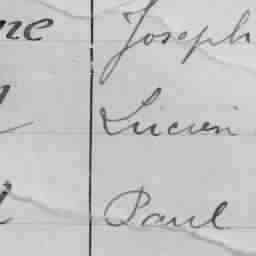 ne Joseph
Lucien
Paul